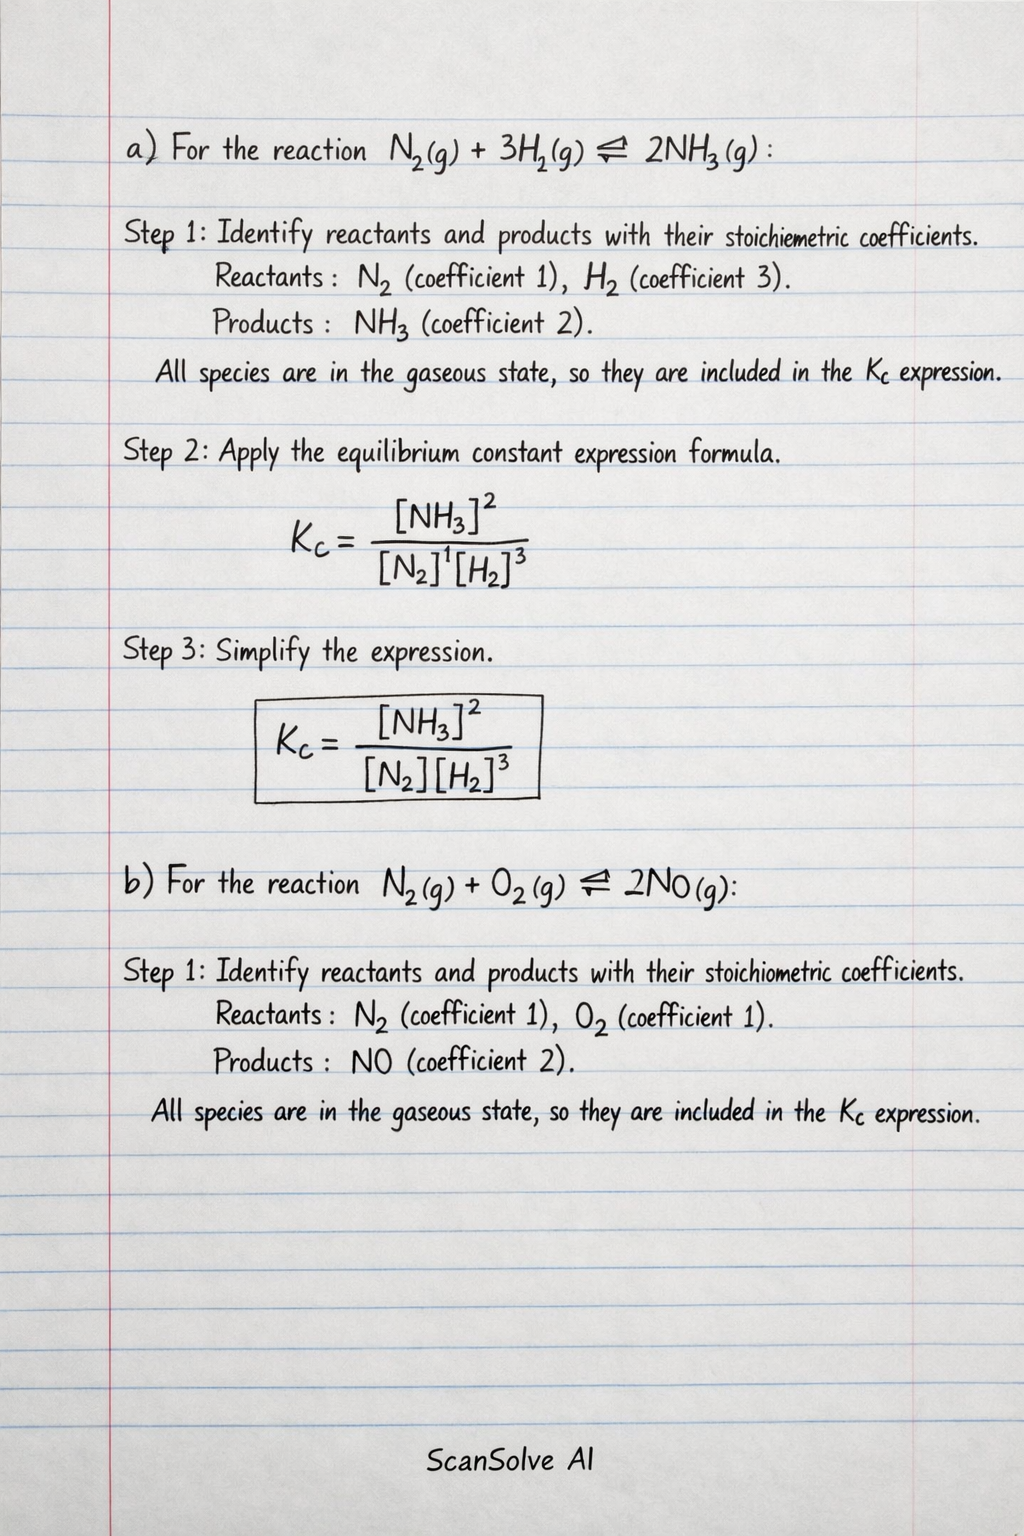 a) For the reaction N₂(g) + 3H₂(g) ⇌ 2NH₃(g) :
Step 1: Identify reactants and products with their stoichiemetric coefficients.
Reactants : N₂ (coefficient 1), H₂ (coefficient 3).
Products : NH₃ (coefficient 2).
All species are in the gaseous state, so they are included in the Kc expression.
Step 2: Apply the equilibrium constant expression formula.
Kc = [NH₃]² / [N₂]¹[H₂]³
Step 3: Simplify the expression.
Kc = [NH₃]² / [N₂][H₂]³
b) For the reaction N₂(g) + O₂(g) ⇌ 2NO(g):
Step 1: Identify reactants and products with their stoichiometric coefficients.
Reactants : N₂ (coefficient 1), O₂ (coefficient 1).
Products : NO (coefficient 2).
All species are in the gaseous state, so they are included in the Kc expression.
ScanSolve AI